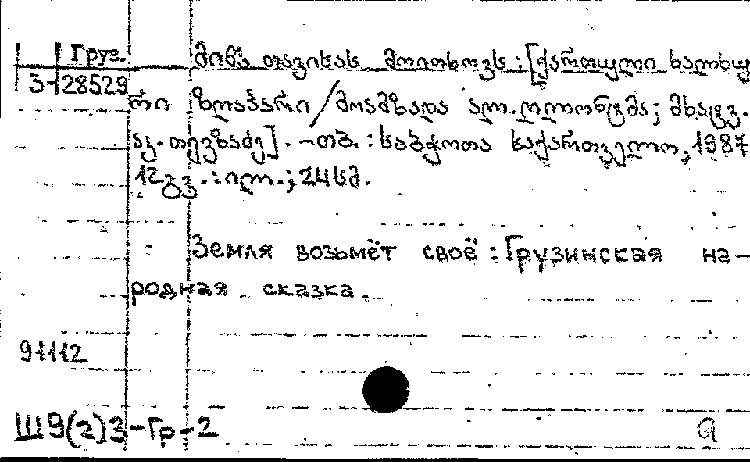 Груз. მიწა თავისას მოითხოვს : [ქართული ხალხუ
3-28529
რი ზღაპარი / მოამზადა ალ. ღლონტმა ; მხატვ.
აკ. თევზაძე]. - თბ. : საბჭოთა საქართველო, 1987
12 გვ. : ილ. ; 24 სმ.
Земля возьмёт своё : Грузинская на-
родная сказка.
91112
Ш9(2)3-Гр-2